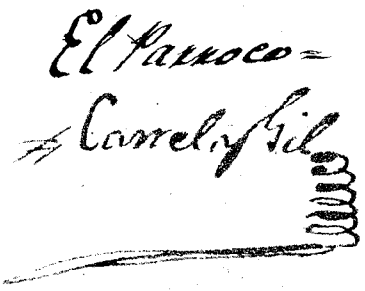 El Parroco=
Carrel y Gil